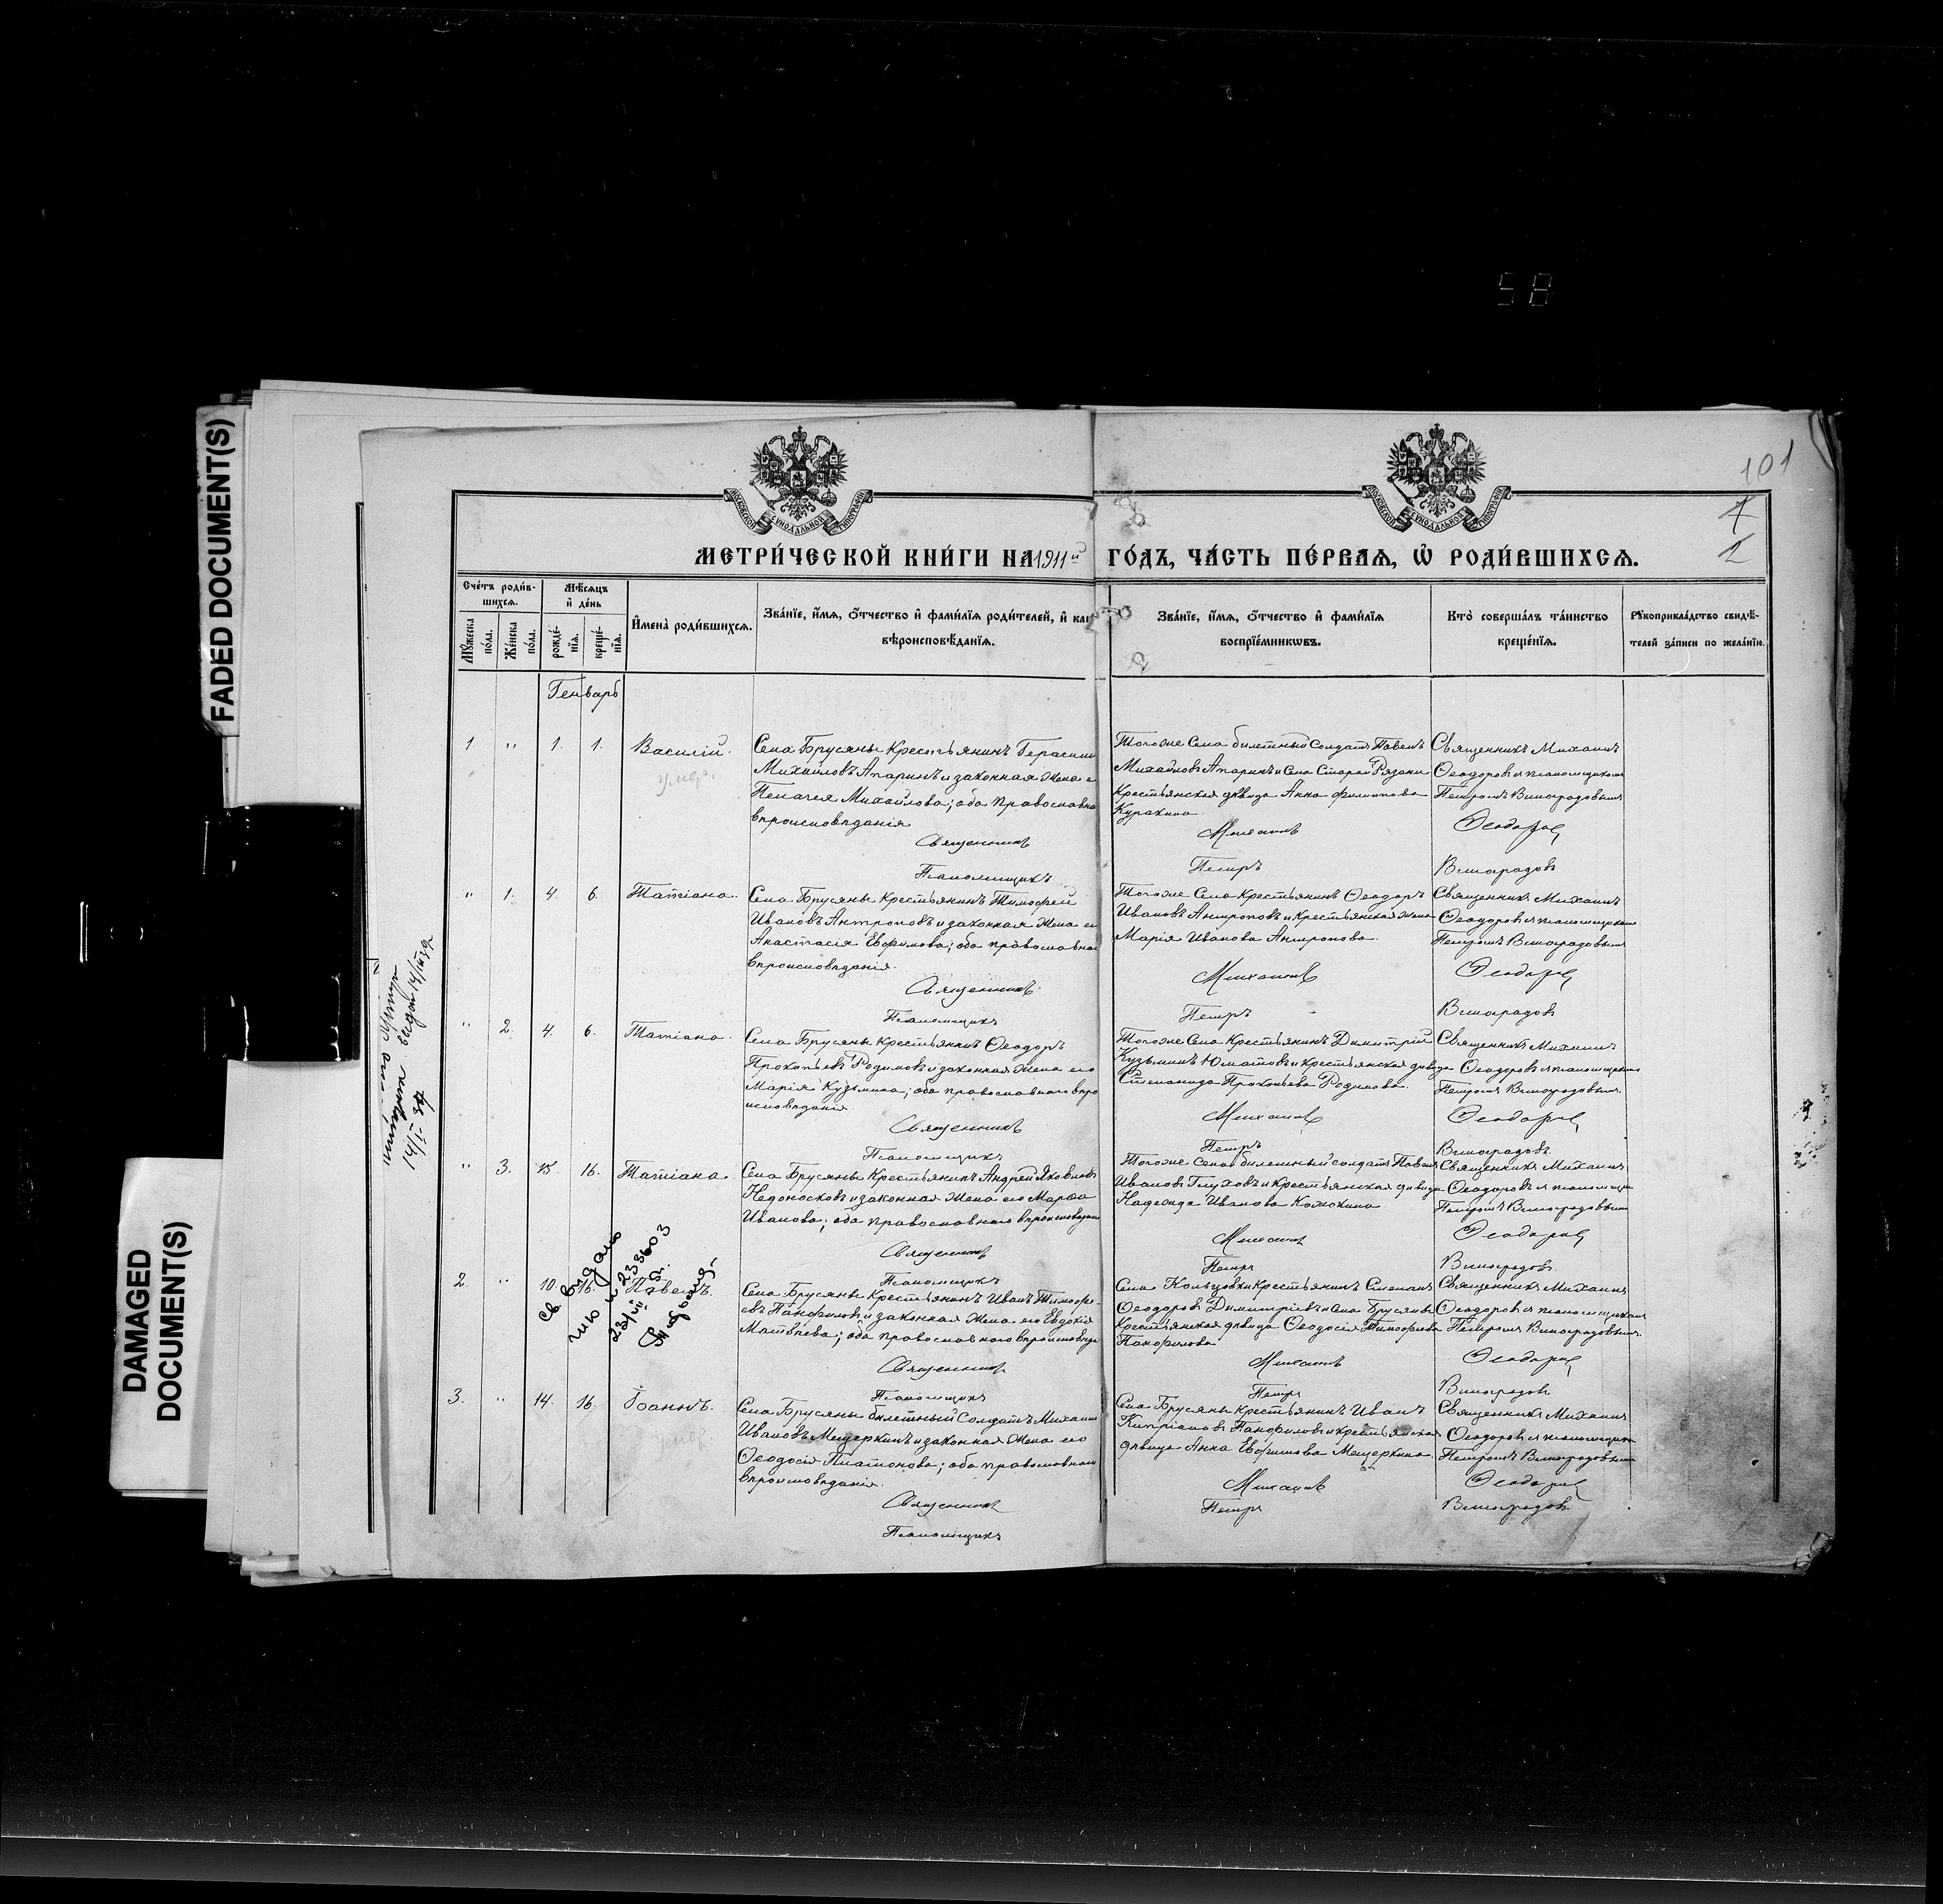 58
FADED DOCUMENT(S)
DAMAGED
DOCUMENT(S)
101
1
МОСКОВСКОЙ СѴНОДАЛЬНОЙ ТИПОГРАФІИ
МОСКОВСКОЙ СѴНОДАЛЬНОЙ ТИПОГРАФІИ
МЕТРИ́ЧЕСКОЙ КНИ́ГИ НА 1911й ГО́ДЪ, ЧА́СТЬ ПЕ́РВАѦ, Ѡ҆ РОДИ́ВШИХСѦ.
Сче́тъ роди́в-
шихсѧ.
Мꙋ́жеска по́ла.
Же́нска по́ла.
Мѣ́сѧцъ
и҆ де́нь
рожде́-нїѧ.
креще́-нїѧ.
И҆мена̀ роди́вшихсѧ.
Зва́нїе, и҆́мѧ, ѻ҆́тчество и҆ фами́лїѧ роди́телей, и҆ как
вѣроисповѣ́данїѧ.
Зва́нїе, и҆́мѧ, ѻ҆́тчество и҆ фами́лїѧ
воспрїе́мникѡвъ.
Кто̀ соверша́лъ та́инство
креще́нїѧ.
Рꙋкоприкла́дство свидѣ́-
телей за́писи по жела́нїю.
Генварь
1. " 1. 1. Василій.
умер.
Села Брусяны Крестьянинъ Герасим
Михайловъ Апаринъ и законная жена е
Пелагея Михайлова; оба православна
вѣроисповѣданія
Священникъ
Псаломщикъ
Тогоже Села билетный Солдатъ Павелъ
Михайловъ Апаринъ и Села Старой Рязани
Крестьянская дѣвица Анна Филиппова
Куракина
Михаилъ
Петръ
Священникъ Михаилъ
Ѳеодоровъ и псаломщикомъ
Петромъ Виноградовымъ
Ѳеодоровъ
Виноградовъ
" 1. 4. 6. Татіана.
Села Брусяны Крестьянинъ Тимофей
Ивановъ Антроповъ и законная жена ег
Анастасія Евфимова; оба православна
вѣроисповѣданія.
Священникъ
Псаломщикъ
Тогоже Села Крестьянинъ Ѳеодоръ
Ивановъ Антроповъ и Крестьянская жена
Марія Иванова Антропова.
Михаилъ
Петръ
Священникъ Михаилъ
Ѳеодоровъ и псаломщикомъ
Петромъ Виноградовымъ
Ѳеодоровъ
Виноградовъ
" 2. 4. 6. Татіана.
Села Брусяны Крестьянинъ Ѳеодоръ
Прокопьевъ Родимовъ и законная жена его
Марія Кузьмина; оба православнаго вѣро
исповѣданія.
Священникъ
Псаломщикъ
Тогоже Села Крестьянинъ Димитрій
Кузьминъ Юматовъ и крестьянская дѣвица
Степанида Прокопьева Родимова.
Михаилъ
Петръ
Священникъ Михаилъ
Ѳеодоровъ и псаломщикомъ
Петромъ Виноградовымъ.
Ѳеодоровъ
Виноградовъ.
" 3. 15. 16. Татіана.
Села Брусяны Крестьянинъ Андрей Яковлевъ
Недоносковъ и законная жена его Марѳа
Иванова; оба православнаго вѣроисповѣдан
Священникъ
Псаломщикъ
Тогоже Села билетный солдатъ Павелъ
Ивановъ Глуховъ и Крестьянская дѣвица
Надежда Иванова
Михаилъ
Петръ
Священникъ Михаилъ
Ѳеодоровъ и псаломщик
Петромъ Виноградовымъ
Ѳеодоровъ
Виноградовъ.
2. " 10. 16. Павелъ.
Св. выдано
23/VII
Села Брусяны Крестьянинъ Иванъ Тимофе-
евъ Панфиловъ и законная жена его Евдокія
Матвѣева; оба православнаго вѣроисповѣда
Священникъ
Псаломщикъ
Села Кольцовки Крестьянинъ Степанъ
Ѳеодоровъ Димитріевъ и Села Брусяны
Крестьянская дѣвица Ѳеодосія Тимофеева
Панфилова
Михаилъ
Петръ
Священникъ Михаилъ
Ѳеодоровъ и псаломщикомъ
Петромъ Виноградовымъ.
Ѳеодоровъ
Виноградовъ.
3. " 14. 16. Іоаннъ.
умер.
Села Брусяны билетный Солдатъ Михаил
Ивановъ Мещеркинъ и законная жена его
Ѳеодосія Платонова; оба православнаго
вѣроисповѣданія.
Священникъ
Псаломщикъ
Села Брусяны Крестьянинъ Иванъ
Кипріановъ Панфиловъ и крестьянская
дѣвица Анна Евфимова Мещеркина.
Михаилъ
Петръ
Священникъ Михаилъ
Ѳеодоровъ и псаломщикомъ
Петромъ Виноградовымъ
Ѳеодоровъ
Виноградовъ